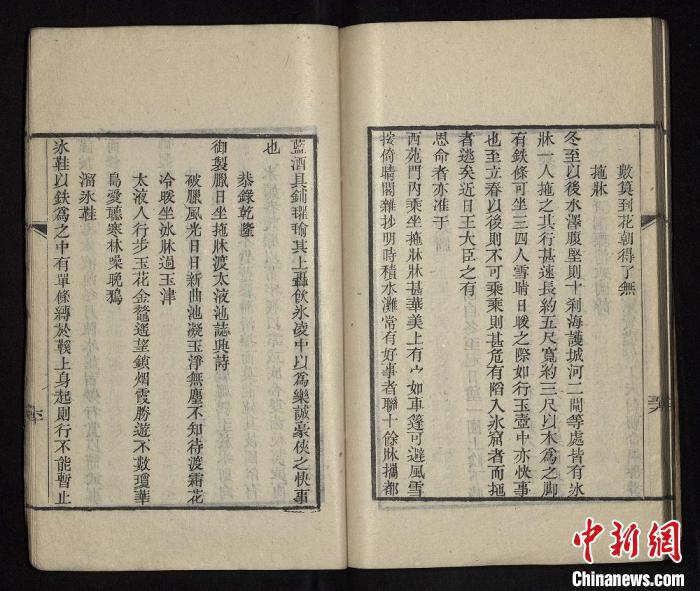 數算到花朝得了無
拖牀
冬至以後水澤腹堅則十刹海護城河二閘等處皆有冰
牀一人拖之其行甚速長約五尺寬約三尺以木爲之脚
有鉄條可坐三四人雪晴日暖之際如行玉壺中亦快事
也至立春以後則不可乘乘則甚危有陷入氷窟者而拖
者逃矣近日王大臣之有
恩命者亦准于
西苑門內乘坐拖牀牀甚華美上有𥁕如車篷可避風雪
按倚晴閣雜抄明時積水灘常有好事者聯十餘牀攜都
藍酒具鋪氍毹其上轟飲氷凌中以爲樂誠豪俠之快事
也
恭錄乾隆
御製臘日坐拖牀渡太液池誌興詩
破臘風光日日新曲池凝玉淨無塵不知待渡霜花
冷暖坐氷牀過玉津
太液人行步玉花金鼇遥望鎖烟霞勝遊不數瓊華
島愛聽寒林噪晚鴉
溜氷鞋
氷鞋以鉄爲之中有單條縛於鞵上身起則行不能暫止
中新網
Chinanews.com